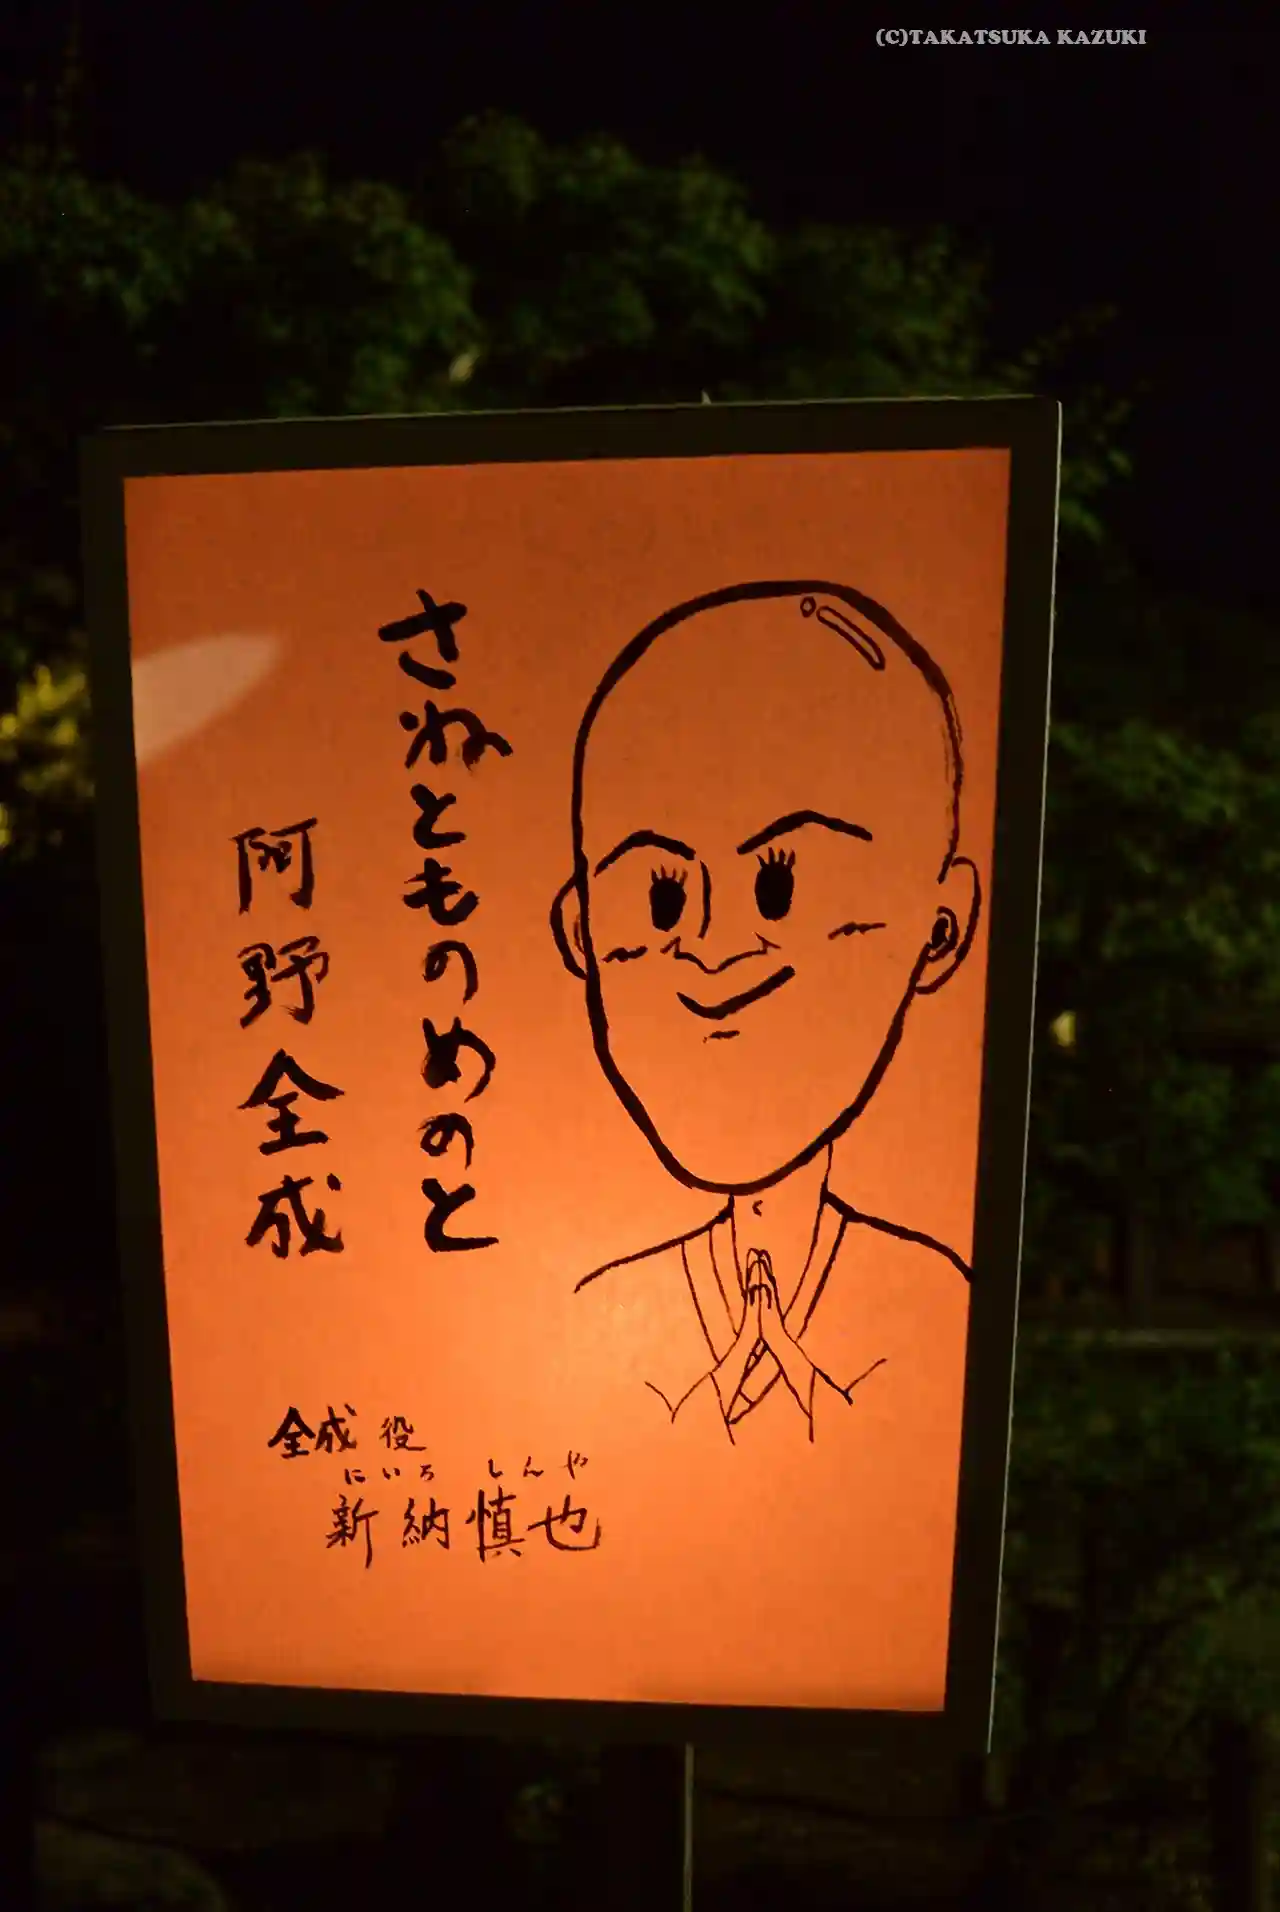 (C)TAKATSUKA KAZUKI
さねとものめのと
阿野全成
全成 役
にいろ しんや
新納慎也